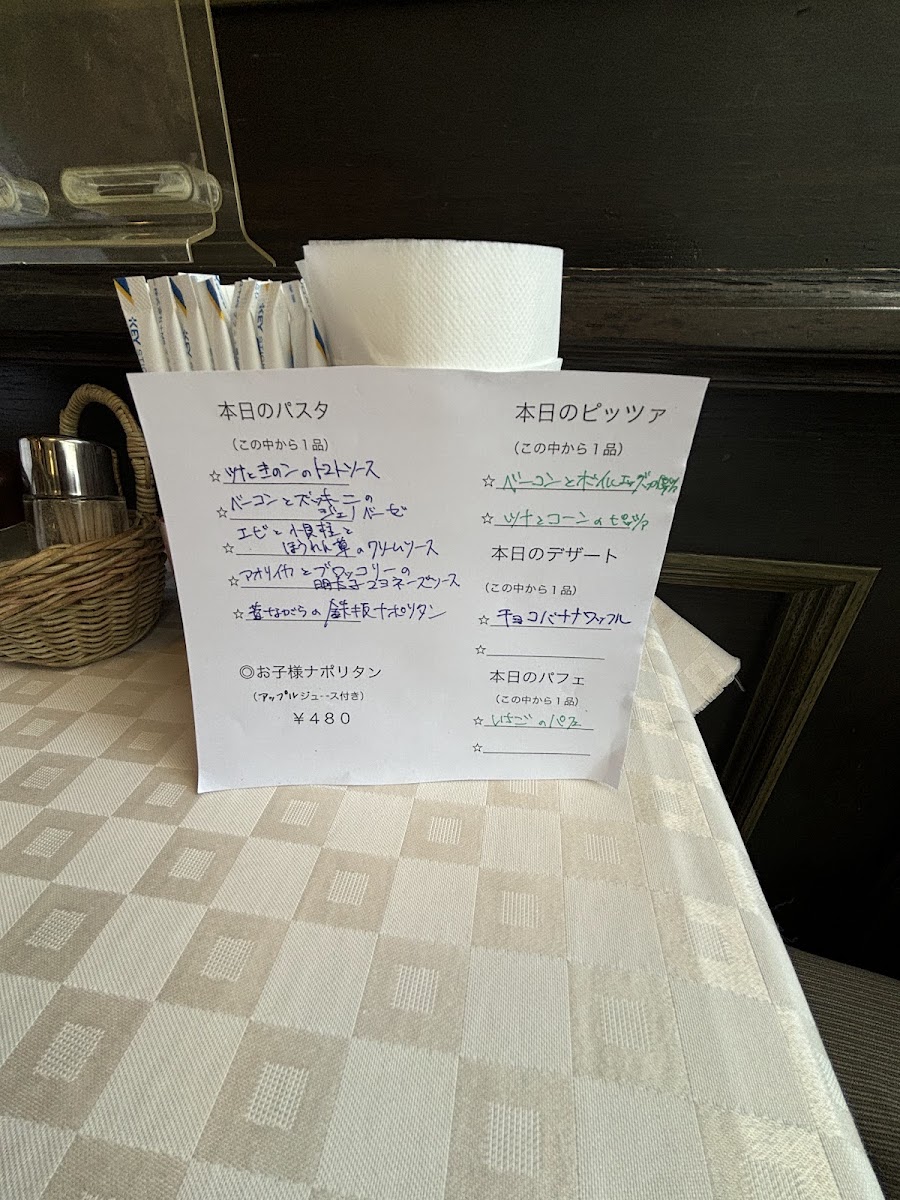 KEY
KEY
本日のパスタ
(この中から1品)
☆ツナときのこのトマトソース
☆ベーコンとズッキーニの
ジェノベーゼ
エビと小貝柱と
☆ほうれん草のクリームソース
☆アオリイカとブロッコリーの
明太子マヨネーズソース
☆昔ながらの鉄板ナポリタン
◎お子様ナポリタン
(アップルジュース付き)
¥480
本日のピッツァ
(この中から1品)
☆ベーコンとボイルエッグの
☆ツナとコーンのピッツァ
本日のデザート
(この中から1品)
☆チョコバナナワッフル
☆
本日のパフェ
(この中から1品)
☆いちごのパフェ
☆